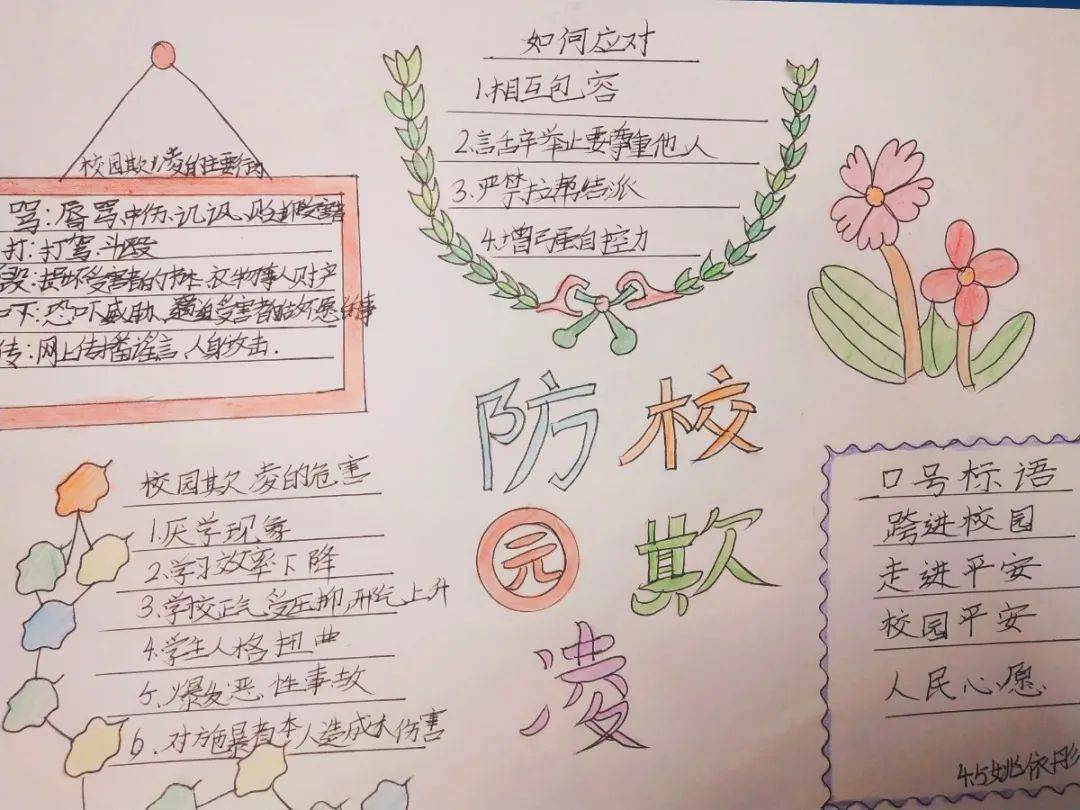 校园欺凌的主要行为
骂:辱骂、中伤、讥讽、贬抑受害者
打:打骂、斗殴
毁:损坏受害者的书本、衣物等人财产
吓:恐吓、威胁、逼迫受害者做不愿做事
传:网上传播谣言、人身攻击.
如何应对
1.相互包容
2.言语举止要尊重他人
3.严禁拉帮结派
4.增强自控力
防校
园欺
凌
校园欺凌的危害
1.厌学现象
2.学习效率下降
3.学校正气受压抑,邪气上升
4.学生人格扭曲
5.爆发恶性事故
6.对方施暴者本人造成大伤害
口号标语
跨进校园
走进平安
校园平安
人民心愿
4.5姚依彤